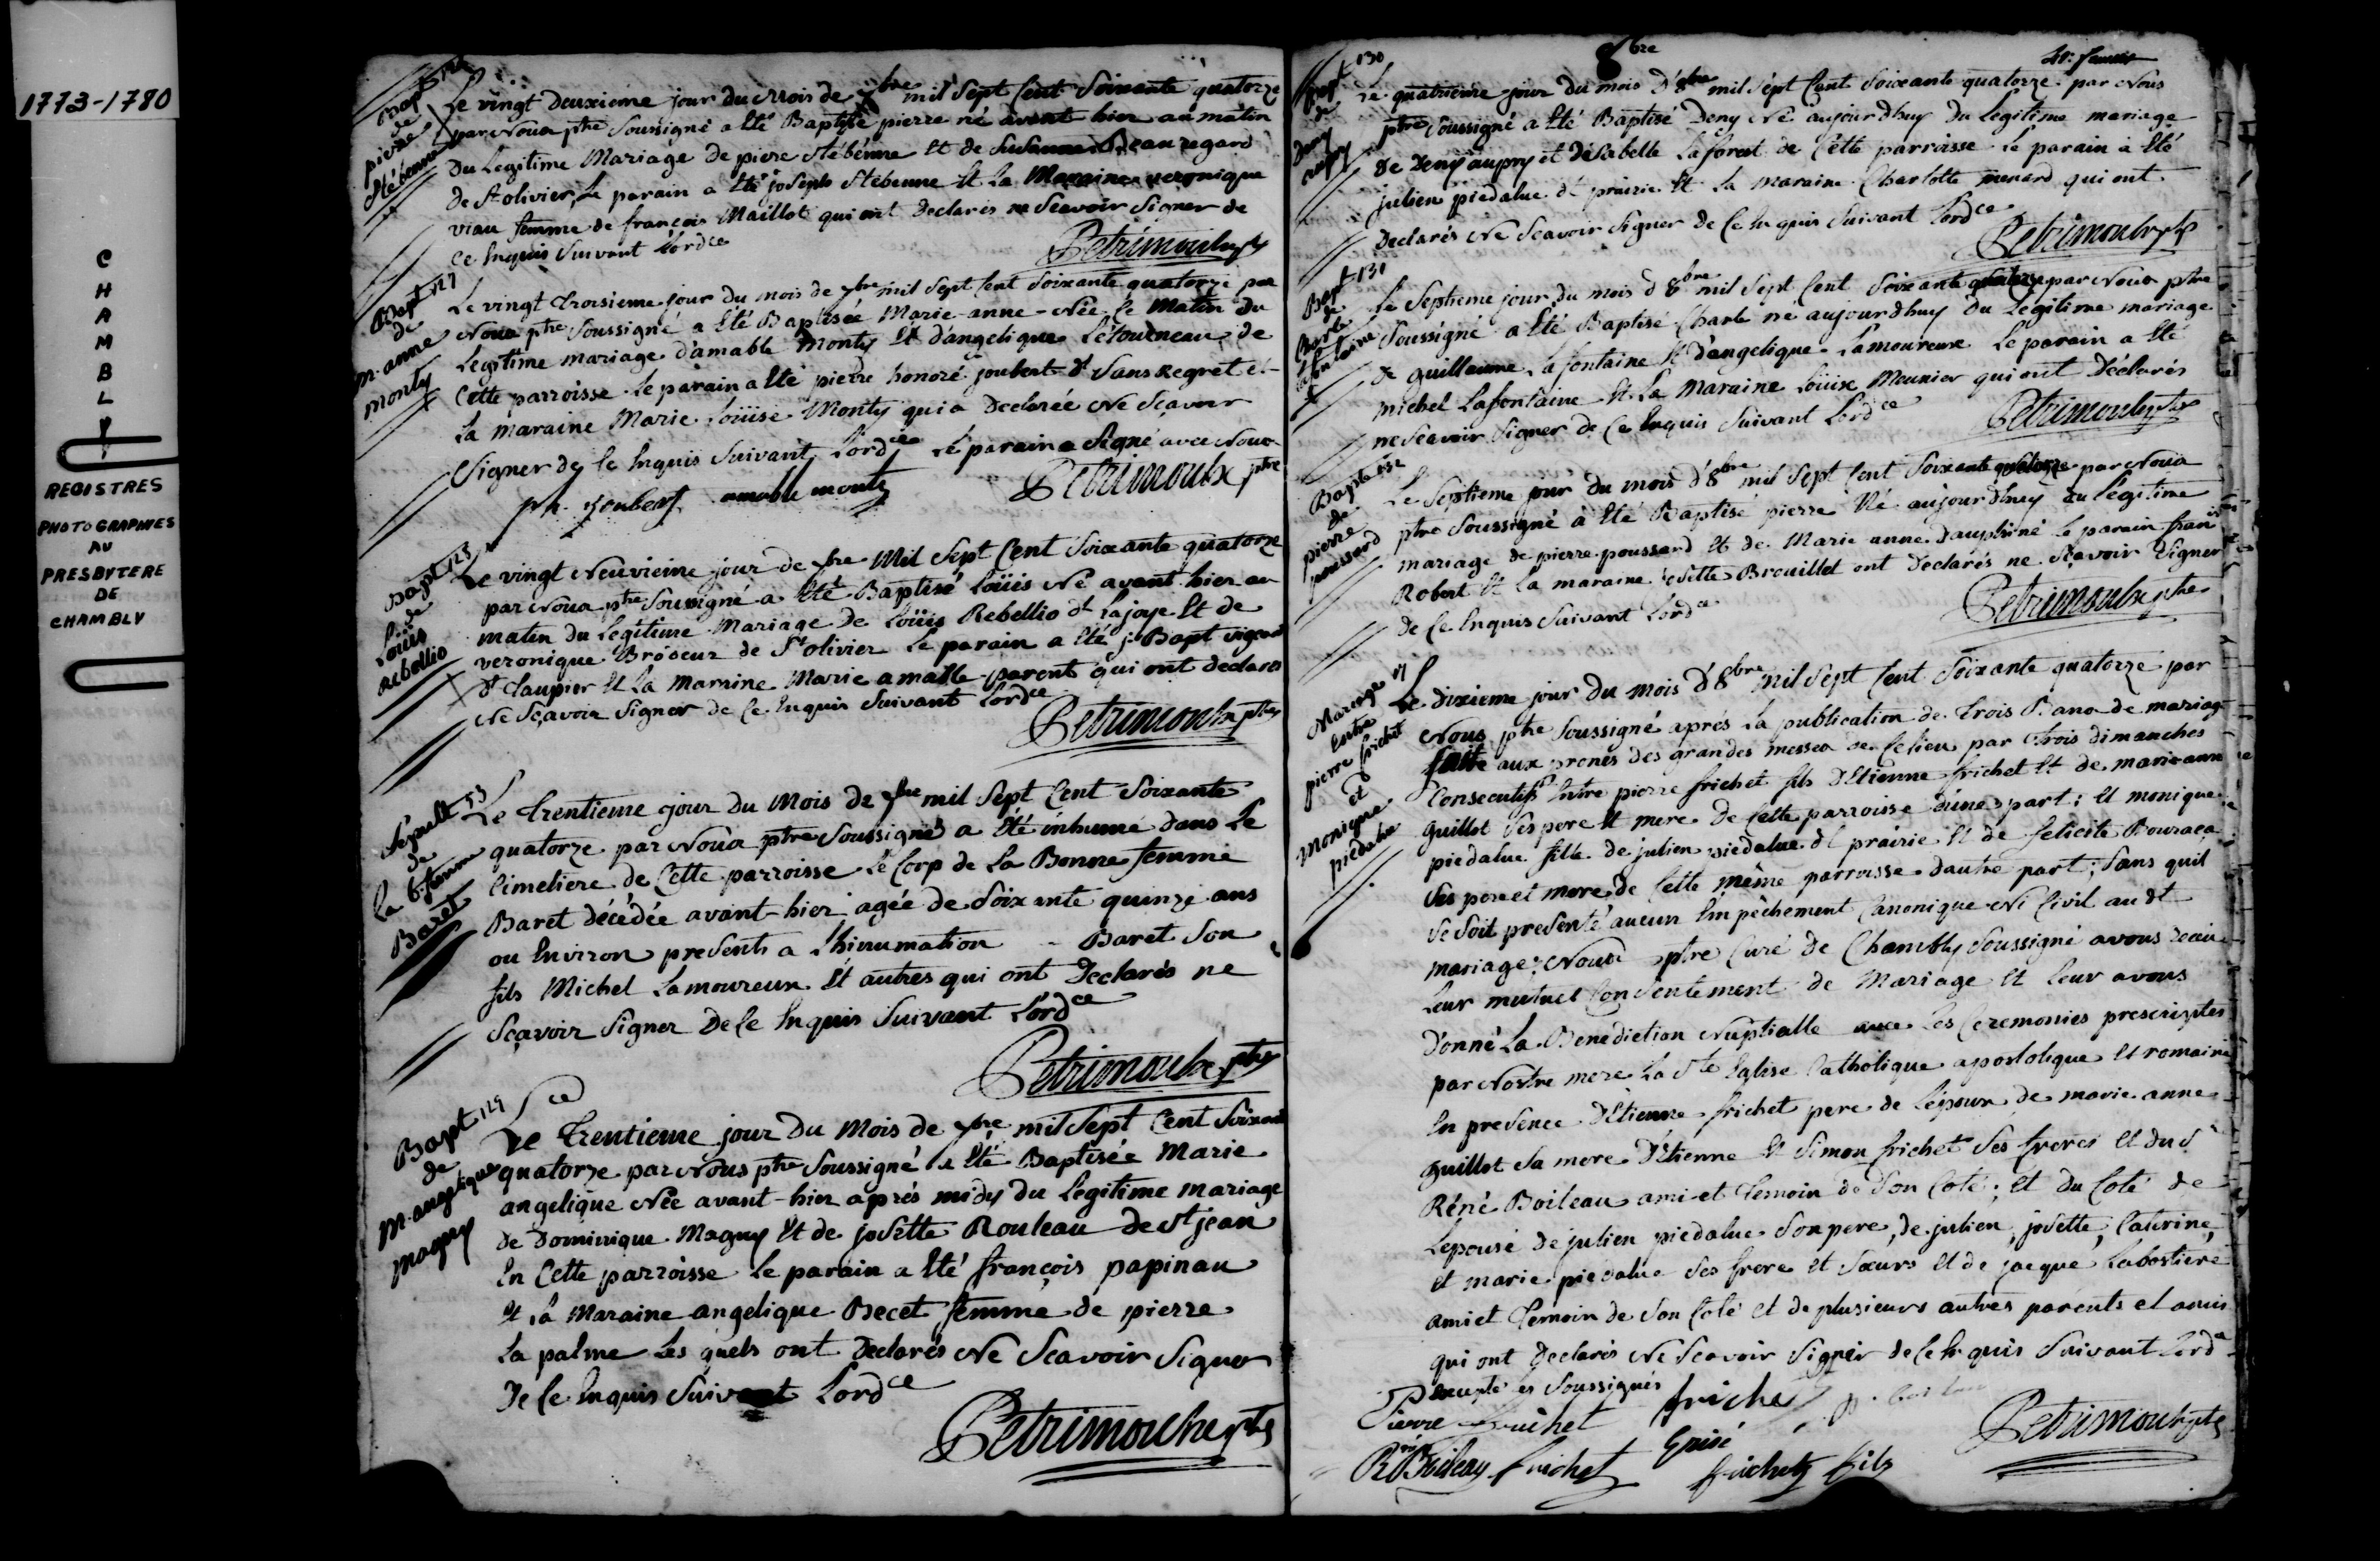 1773-1780
C
H
A
M
B
L
Y
REGISTRES
PHOTOGRAPHIES
AU
PRESBYTERE
DE
CHAMBLY
Bapt
de
pierre
Stebenne
Le vingt Deuxieme jour du Mois de 7bre mil Sept Cent Soixante quatorze
par Nous ptre Soussigné a Eté Baptisé pierre né avant hier au matin
Du Legitime Mariage de piere Stébenne Et de Susanne regard
de St olivier, Le parain a Eté joseph Stebenne Et La Maraine veronique
viau femme de françois Maillot qui ont Declarés ne Scavoir Signer de
ce Enquis Suivant Lordce
Petrimoulx ptre
Bapt 127
de
M. anne
monty
Le vingt troisieme jour du mois de 7bre mil Sept Cent Soixante quatorze par
Nous ptre Soussigné a Eté Baptisée Marie-anne Née le Matin du
Legitime mariage d'amable Monty Et d'angelique Letourneau de
Cette parroisse Le parain a Eté pierre honoré joubert dt Sans Regret et
La maraine Marie Loüise Monty qui a Declarée Ne Scavoir
Signer de Ce Enquis Suivant Lordce Le parain a Signé avec Nous
ph. Joubert amable monty Petrimoulx ptre
Bapt 128
de
Loüis
Rebellio
Le vingt Neuvieme jour de 7bre Mil Sept Cent Soixante quatorze
par Nous ptre Soussigné a Eté Baptisé Loüis Né avant hier au
matin du Legitime Mariage de Loüis Rebellio dt Lajoye Et de
veronique Broseur de St olivier Le parain a Eté j. Bapt vigeant
dt taupier Et La Marraine Marie amable parent qui ont declarés
Ne Sçavoir Signer de Ce Enquis Suivant Lordce
Petrimoulx ptre
Sepult 53
de
La b. femme
Baret
Le trentieme jour du Mois de 7bre mil Sept Cent Soixante
quatorze par Nous ptre Soussigné a Eté inhumé dans Le
Cimetiere de Cette parroisse Le Corp de La Bonne femme
Baret décédée avant-hier agée de Soixante quinze ans
ou Environ presents a Lhinumation - Baret Son
fils Michel Lamoureux Et autres qui ont Declarés ne
Sçavoir Signer De Ce Enquis Suivant Lordce
Petrimoulx ptre
Bapt 129
de
M. angelique
Magny
Le trentieme jour Du Mois de 7bre mil Sept Cent Soixante
quatorze par Nous ptre Soussigné a Eté Baptisée Marie
angelique Née avant-hier aprés midy Du Legitime mariage
de Dominique Magny Et de josette Rouleau de St jean
En Cette parroisse Le parain a Eté françois papinau
Et La Maraine angelique Becet femme de pierre
La palme Les quels ont Declarés Ne Scavoir Signer
De Ce Enquis Suivant Lordce
Petrimoulx ptre
8bre
130
Bapt
de
Deny
aupry
Le quatrieme jour Du mois D'8bre mil Sept Cent Soixante quatorze par Nous
ptre Soussigné a Eté Baptisé Deny Né aujourdhuy Du Legitime mariage
De Deny aupry et Désabelle Laforest de Cette parroisse Le parain a Eté
julien piedalue dt prairie Et La maraine Charlotte menard qui ont
Declarés Ne Scavoir Signer de Ce Enquis Suivant Lordce
Petrimoulx ptre
Bapt 131
de
Charle
Lafontaine
Le Septieme jour du mois d 8bre mil Sept Cent Soixante quatorze par Nous ptre
Soussigné a Eté Baptisé Charle né aujourdhuy Du Legitime mariage
De guillaume Lafontaine Et d'angelique Lamoureux Le parain a Eté
michel Lafontaine Et La Maraine Loüise Meunier qui ont Déclarés
ne Scavoir Signer de Ce Enquis Suivant Lordce
Petrimoulx ptre
Bapte 132
de
pierre
poussard
Le Septieme jour Du mois d'8bre mil Sept Cent Soixante quatorze par Nous
ptre Soussigné à Eté Baptisé pierre Né aujourdhuy Du Légitime
mariage de pierre poussard Et de Marie anne Dauphiné Le parain fran
Robert Et La maraine josette Brouillet ont Déclarés ne Sçavoir Signer
de Ce Enquis Suivant Lordce
Petrimoulx ptre
Mariage 17
Entre
pierre frichet
et
monique
piedalue
Le dixieme jour Du mois D'8bre mil Sept Cent Soixante quatorze par
Nous ptre Soussigné aprés La publication de trois Bans de mariage
faitte aux pronés des grandes messes de Ce lieu par trois dimanches
Consecutifs Entre pierre frichet fils D'Etienne frichet Et de marie anne
guillot Ses pere Et mere De Cette parroisse d'une part; Et monique
piedalue fille de julien piedalue dt prairie Et de felicité Bourasa
Ses pere et mere de Cette même parroisse dautre part; Sans quil
Se Soit presenté aucun Empêchement Canonique Ni Civil au dt
mariage; Nous ptre Curé de Chambly Soussigné avons reçu
Leur mutuel Consentement de Mariage Et Leur avons
Donné La Benediction Nuptialle avec Les Ceremonies prescriptes
par Nostre mere La Ste Eglise Catholique apostolique Et romaine
En presence D'Etienne frichet pere de Lépoux de marie anne
guillot Sa mere D'Etienne Et Simon frichet Ses freres Et du Sr
Réné Boileau ami et temoin de Son Coté; Et du Coté de
Lepouse de julien piedalue Son pere, de julien, josette, Caterine,
et marie piedalue Ses frere Et Sœurs Et de jacque Labossiere
ami et temoin de Son Coté Et de plusieurs autres parents et amis
qui ont Declarés Ne Scavoir Signer de Ce Enquis Suivant Lordce
Exceptés Les Soussignés
Pierre Frichet friche
R Boileau frichet frichet fils Petrimoulx ptre